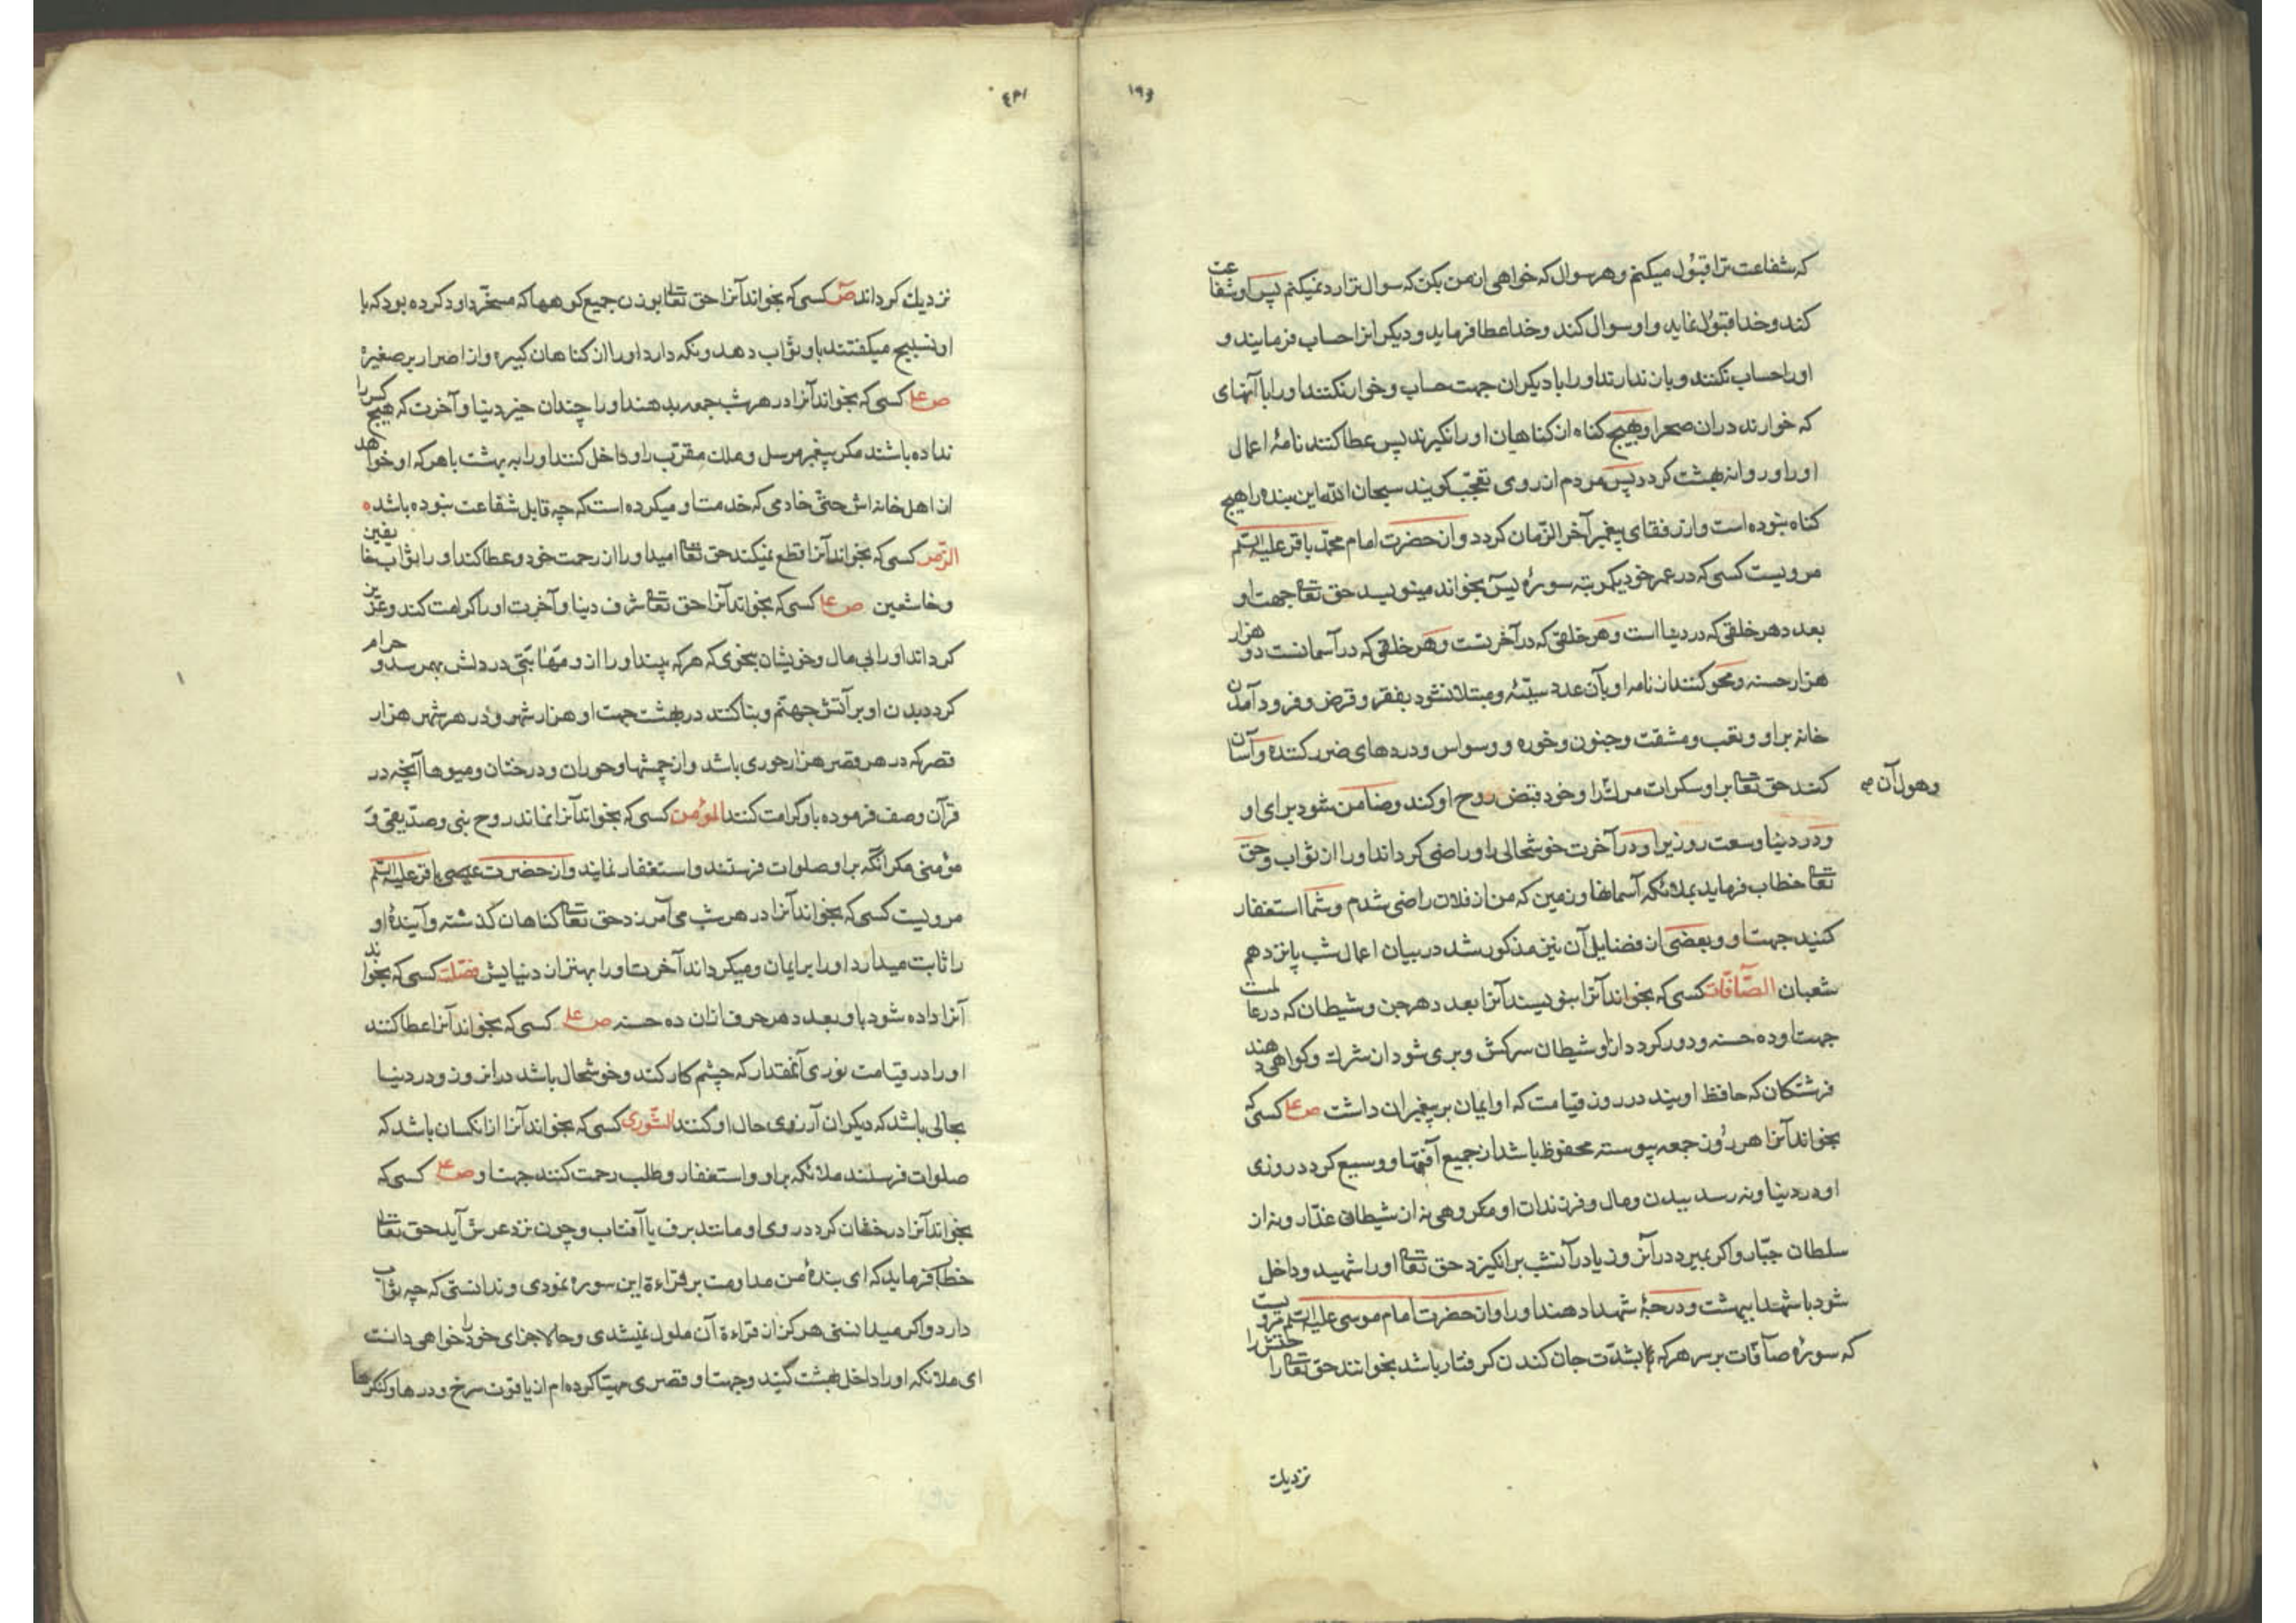 ۱۹۶
که شفاعت ترا قبول میکنم و هر سوال که خواهی از من بکن که سوال ترا رد نمیکنم پس او شفاعت
کند و خدا قبول نماید و او سوال کند و خدا عطا فرماید و دیگرانرا حساب فرمایند و
اورا حساب نکنند و باز ندارند اورا با دیگران جهت حساب و خوار نکنند اورا با آنهای
که خوارند در ان صحرا و بهیچ کناه از کناهان اورا نگیرند پس عطا کنند نامهٔ اعمال
اورا و روانه بهشت کردد پس مردم از روی تعجّب کویند سبحان الله این بنده را هیچ
کناه نبوده است و از رفقای پیغمبر آخر الزّمان کردد و از حضرت امام محمّد باقر علیه السّلم
مرویست کسی که در عمر خود یکمرتبه سورهٔ یس بخواند مینویسد حق تعا جهت او
بعدد هر خلقی که در دنیا است و هر خلقی که در آخرتست و هر خلقی که در آسمانست دو هزار
هزار حسنه و محو کنند از نامه او بآن عدد سیّئه و مبتلا نشود بفقر و قرض و فرود آمدن
خانه بر او و تعب و مشقت و جنون و خوره و وسواس و دردهای ضرر کننده و آسان
کنند حق تعا بر او سکرات مرك را و خود قبض روح او کند و ضامن شود برای او
و هول آن
و در دنیا وسعت روزیرا و در آخرت خوشحالی را و راضی کرداند اورا از ثواب و حق
تعا خطاب فرماید بملائکه آسمانها و زمین که من از فلان راضی شدم و شما استغفار
کنید جهت او و بعضی از فضایل آن نیز مذکور شد در بیان اعمال شب پانزدهم
شعبان الصّافّات کسی که بخواند آنرا بنویسند آنرا بعدد هر جن و شیطان که در عالمست
جهت او ده حسنه و دور کردد از او شیطان سرکش و بری شود از شرك و کواهی دهند
فرشتکان که حافظ اویند در روز قیامت که او ایمان بر پیغمبران داشت ص ع کسی که
بخواند آنرا هر روز جمعه پیوسته محفوظ باشد از جمیع آفتها و وسیع کردد روزی
او در دنیا و نه رسد ببدن و مال و فرزندان او مکروهی نه از شیطان غدّار و نه از
سلطان جبّار و اکر بمیرد در آنروز یا در آنشب برانکیزد حق تعا اورا شهید و داخل
شود با شهدا ببهشت و درجهٔ شهدا دهند اورا و از حضرت امام موسی علیه السّلم مرویست
که سورهٔ صآفّات بر سر هر که بشدّت جان کندن کرفتار باشد بخوانند حق تعا راحتش را
نزدیك
نزدیك کرداند ص کسی که بخواند آنرا حق تعا بوزن جمیع کوهها که مسخّر داود کرده بود که با
او تسبیح میکفتند باو ثواب دهد و نکه دارد اورا از کناهان کبیره و از اصرار بر صغیره
ص ع کسی که بخواند آنرا در هر شب جمعه بدهند اورا چندان خیر دنیا و آخرت که هیچ کس را
نداده باشند مکر پیغمبر مرسل و ملك مقرّب را و داخل کنند اورا به بهشت با هر که او خواهد
از اهل خانه اش حتّی خادمی که خدمت او میکرده است که چه قابل شفاعت نبوده باشد
الزّمر کسی که بخواند آنرا قطع نمیکند حق تعا امید اورا از رحمت خود و عطا کند اورا ثواب خایفین
و خاشعین ص ع کسی که بخواند آنرا حق تعا شرف دنیا و آخرت اورا کرامت کند و عزیز
کرداند اورا بی مال و خویشان بنحوی که هر که بیند اورا از و مهابتی در دلش بهمرسد و حرام
کردد بدن او بر آتش جهنّم و بنا کنند در بهشت جهت او هزار شهر و در هر شهر هزار
قصر که در هر قصر هزار حوری باشد و از چشمها و حوران و درختان و میوها آنچه در
قرآن وصف فرموده باو کرامت کنند المؤمن کسی که بخواند آنرا نماند روح نبی و صدّیقی و
مؤمنی مکر انکه بر او صلوات فرستند و استغفار نمایند و از حضرت باقر علیه السّلم
مرویست کسی که بخواند آنرا در هر شب می آمرزد حق تعا کناهان کذشته و آیندهٔ او
را ثابت میدارد اورا بر ایمان و میکرداند آخرت اورا بهتر از دنیایش فصّلت کسی که بخواند
آنرا داده شود باو بعدد هر حرف ازان ده حسنه ص ع کسی که بخواند آنرا عطا کنند
اورا در قیامت نوری آنمقدار که چشم کار کند و خوشحال باشد در انروز و در دنیا
بحالی باشد که دیکران آرزوی حال او کنند الشّوری کسی که بخواند آنرا از انکسان باشد که
صلوات فرستند ملائکه بر او و استغفار و طلب رحمت کنند جهت او ص ع کسی که
بخواند آنرا درخشان کردد روی او مانند برف یا آفتاب و چون نزد عرش آید حق تعا
خطاب فرماید که ای بندهٔ من مداومت بر قراءة این سوره نمودی و ندانستی که چه ثواب
دارد و اکر میدانستی هرکز از قراءة آن ملول نمیشدی و حالا جزای خود را خواهی دانست
ای ملائکه اورا داخل بهشت کنید و جهت او قصری مهیّا کرده ام از یاقوت سرخ و درها و کنکرها